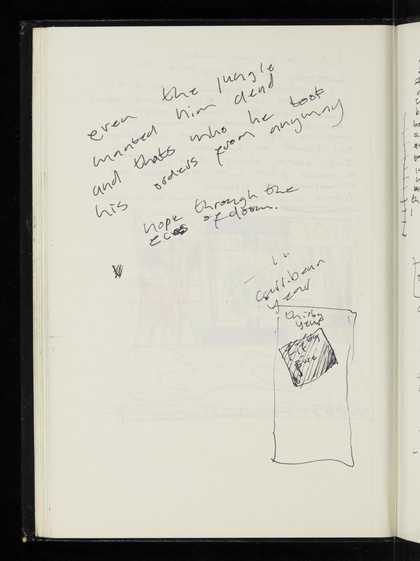 even the jungle
wanted him dead
and thats who he took
his orders from anyway
hope through the
of doom.
caribbean
year
thirty
year